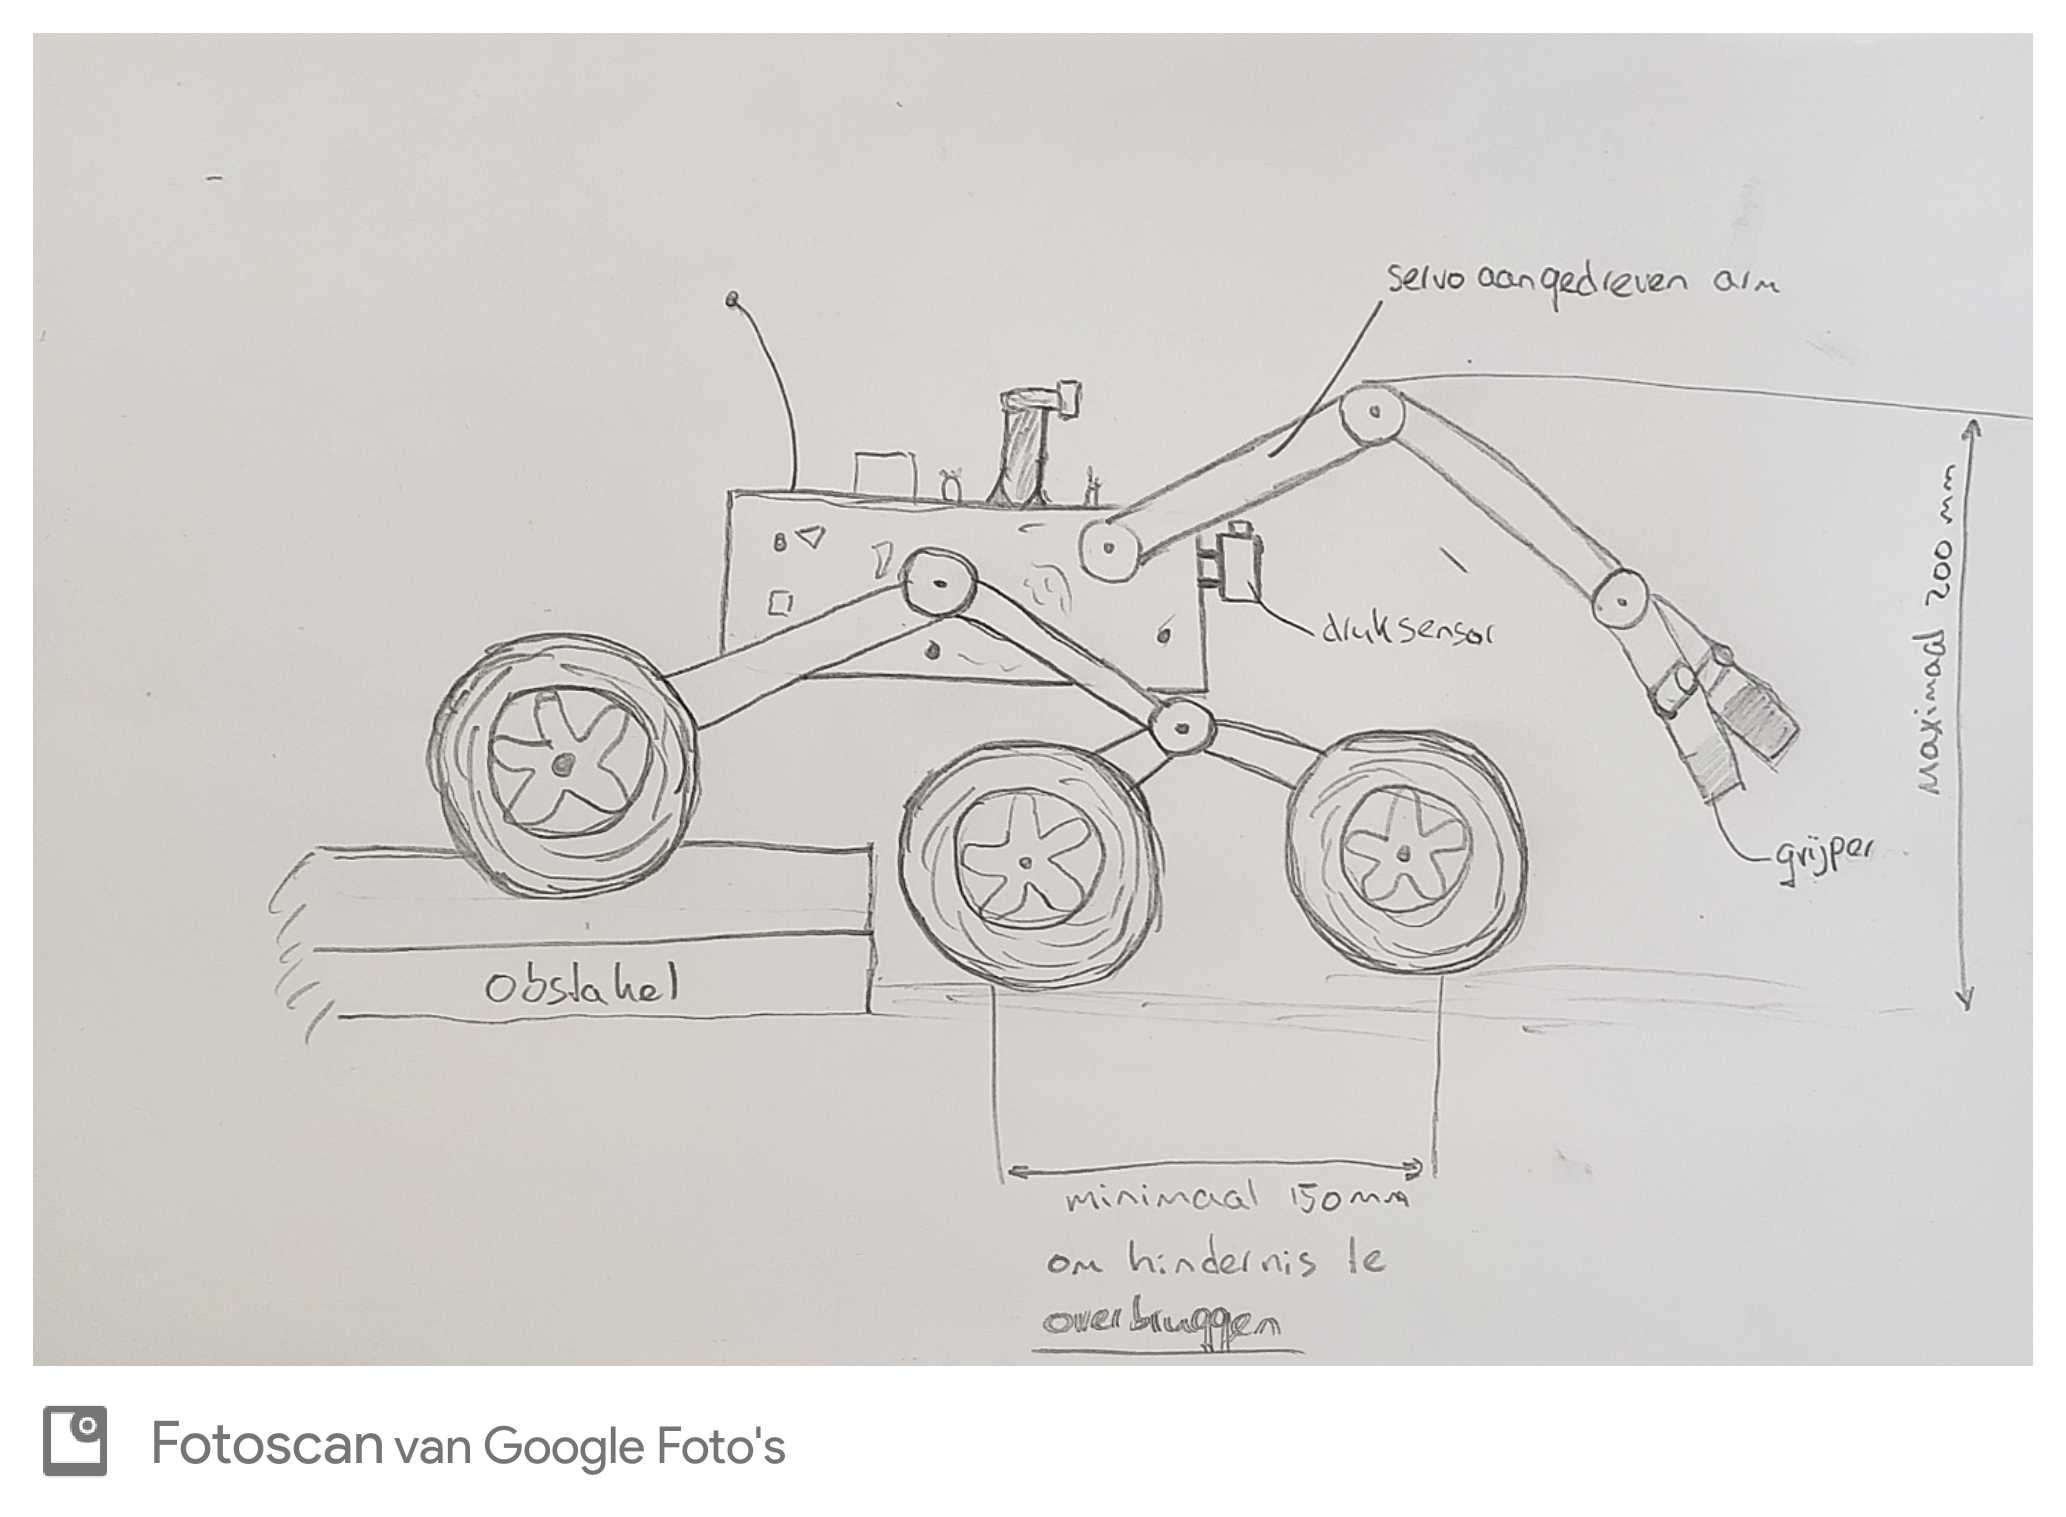 servo aangedreven arm
druksensor
maximaal 200 mm
grijper
Obstakel
minimaal 150mm
om hindernis te
overbruggen
Fotoscan van Google Foto's